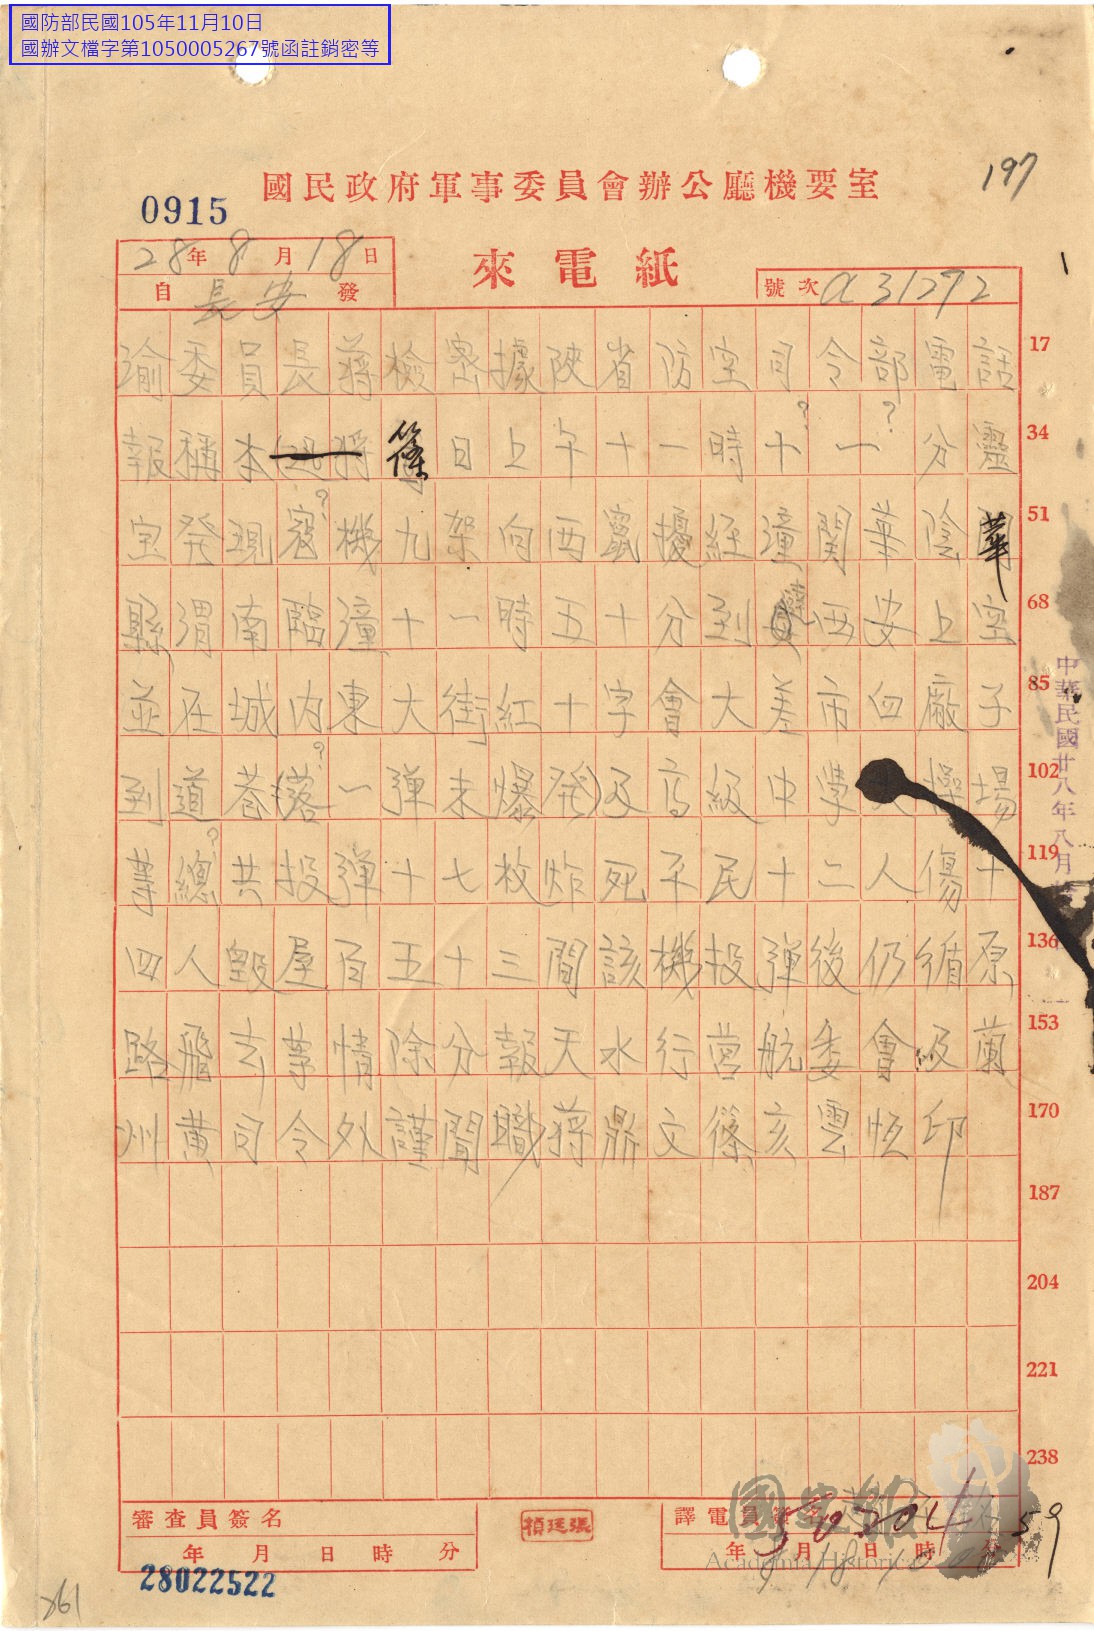 國防部民國105年11月10日
國辦文檔字第1050005267號函註銷密等
197
國民政府軍事委員會辦公廳機要室
0915
來電紙
28年8月18日
自長安發
號次 31272
渝委員長蔣檢密據陝省防空司令部電話 17
報稱本 篠日上午十一時十?一?分靈 34
宝発現 ?機九架向西竄擾経潼関華陰華 51
縣渭南臨潼十一時五十分到 西安上空 68
並在城内東大街紅十字會大差市血廠子 85
到道巷(落?一弾未爆発)及高級中学 操場 102
等總?共投弾十七枚炸死平民十二人傷十 119
四人毀屋百五十三間該機投弾後仍循原 136
路飛去等情除分報天水行営航委會及蘭 153
州黄司令外謹聞職蔣鼎文篠亥雲恆印 170
187
204
221
238
中華民國廿八年八月
審查員簽名
年 月 日 時 分
張廷楨
譯電員簽名
年 月 日 時 分
8 18
59
28022522
261
國史館
Academia Historica